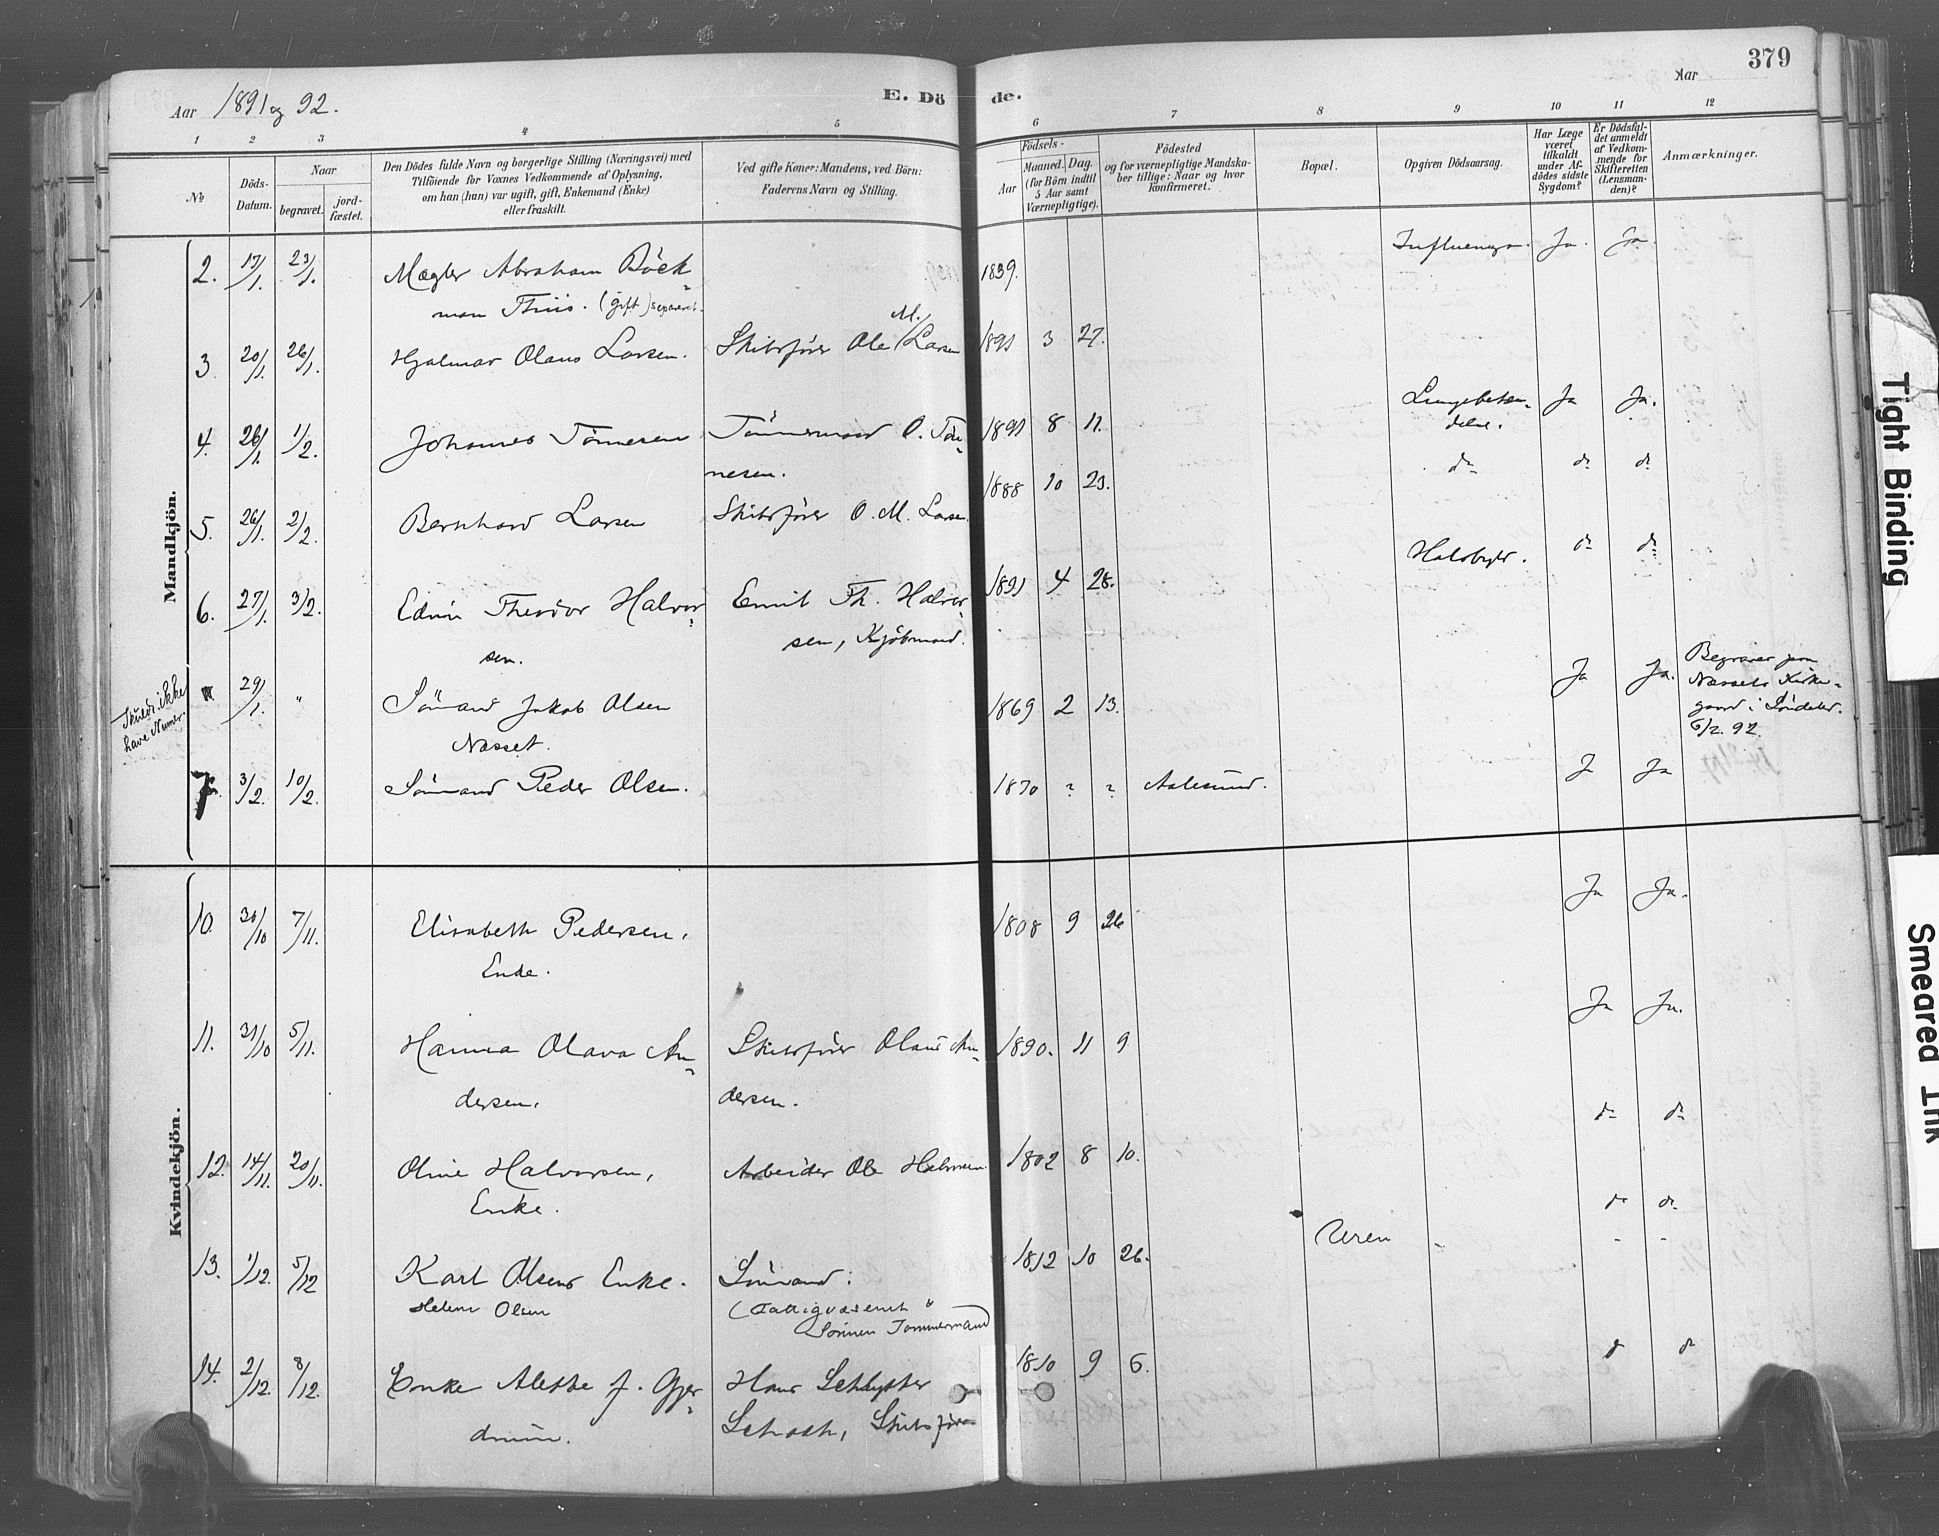 379
Aar 1891 og 92.
E. Dö
de.
Aar
1 2 3 4 5 6 7 8 9 10 11 12
No
Döds-
Datum.
Naar
begravet.
jord-
fæstet.
Den Dödes fulde Navn og borgerlige Stilling (Næringsvei) med
Tilföiende for Voxnes Vedkommende af Oplysning,
om han (hun) var ugift, gift, Enkemand (Enke)
eller fraskilt.
Ved gifte Koner: Mandens, ved Börn:
Faderens Navn og Stilling.
Födsels-
Aar
Maaned. Dag.
(for Börn indtil
5 Aar samt
Værnepligtige).
Födested
og for værnepligtige Mandska-
ber tillige: Naar og hvor
konfirmeret.
Bopæl.
Opgiven Dödsaarsag.
Har Læge
været
tilkaldt
under Af-
dödes sidste
Sygdom?
Er Dödsfal-
det anmeldt
af Vedkom-
mende for
Skifteretten
(Lensman-
den)?
Anmærkninger.
Mandkjön.
2. 17/1. 23/1. Mægler Abraham Böck- 1839. Influenza. Ja. Ja.
man Thiis. (gift) separeret.
3 20/1. 26/1. Hjalmar Olaus Larsen. Skibsförer Ole M. Larsen 1891 3 27.
4. 26/1. 1/2. Johannes Tönnesen Tömmermand O. Tön- 1891 8 11. Lungebetæn- Ja Ja.
nesen. delse.
5. 26/1. 2/2. Bernhard Larsen Skibsförer O. M. Larsen. 1888 10 23. do do do
6. 27/1. 3/2. Edvin Theodor Halvor- Emil Th. Halvor- 1891 4 28. Halsbyld. do do
sen. sen, Kjöbmand.
Skulde ikke
have Numer.
29/1. " Sömand Jakob Olsen 1869 2 13. Ja Ja. Begraven paa
Næsset. Næssets Kirke-
gaard i Söndeled.
6/2. 92.
7. 3/2. 10/2. Sömand Peder Olsen. 1870 ? ? Aalesund. Ja Ja
Kvindekjön.
10. 30/10 7/11. Elisabeth Pedersen, 1808 9 26 Ja Ja.
Enke.
11. 31/10 5/11. Hanna Olava An- Skibsförer Olaus An- 1890. 11 9 Ja Ja.
dersen. dersen.
12. 14/11. 20/11. Oline Halvorsen, Arbeider Ole Halvorsen 1802 8 10. do do
Enke.
13. 1/12. 5/12 Karl Olsens Enke. Sömand: 1812 10 26. Uren do do
Helene Olsen (Fattigvæsenet
Sönnen Tömmermand
14. 2/12. 8/12. Enke Alethe f. Gjer- Hans Schlytter 1810 9 6. do do
drum. Schoth, Skibsförer
Tight Binding
Smeared Ink